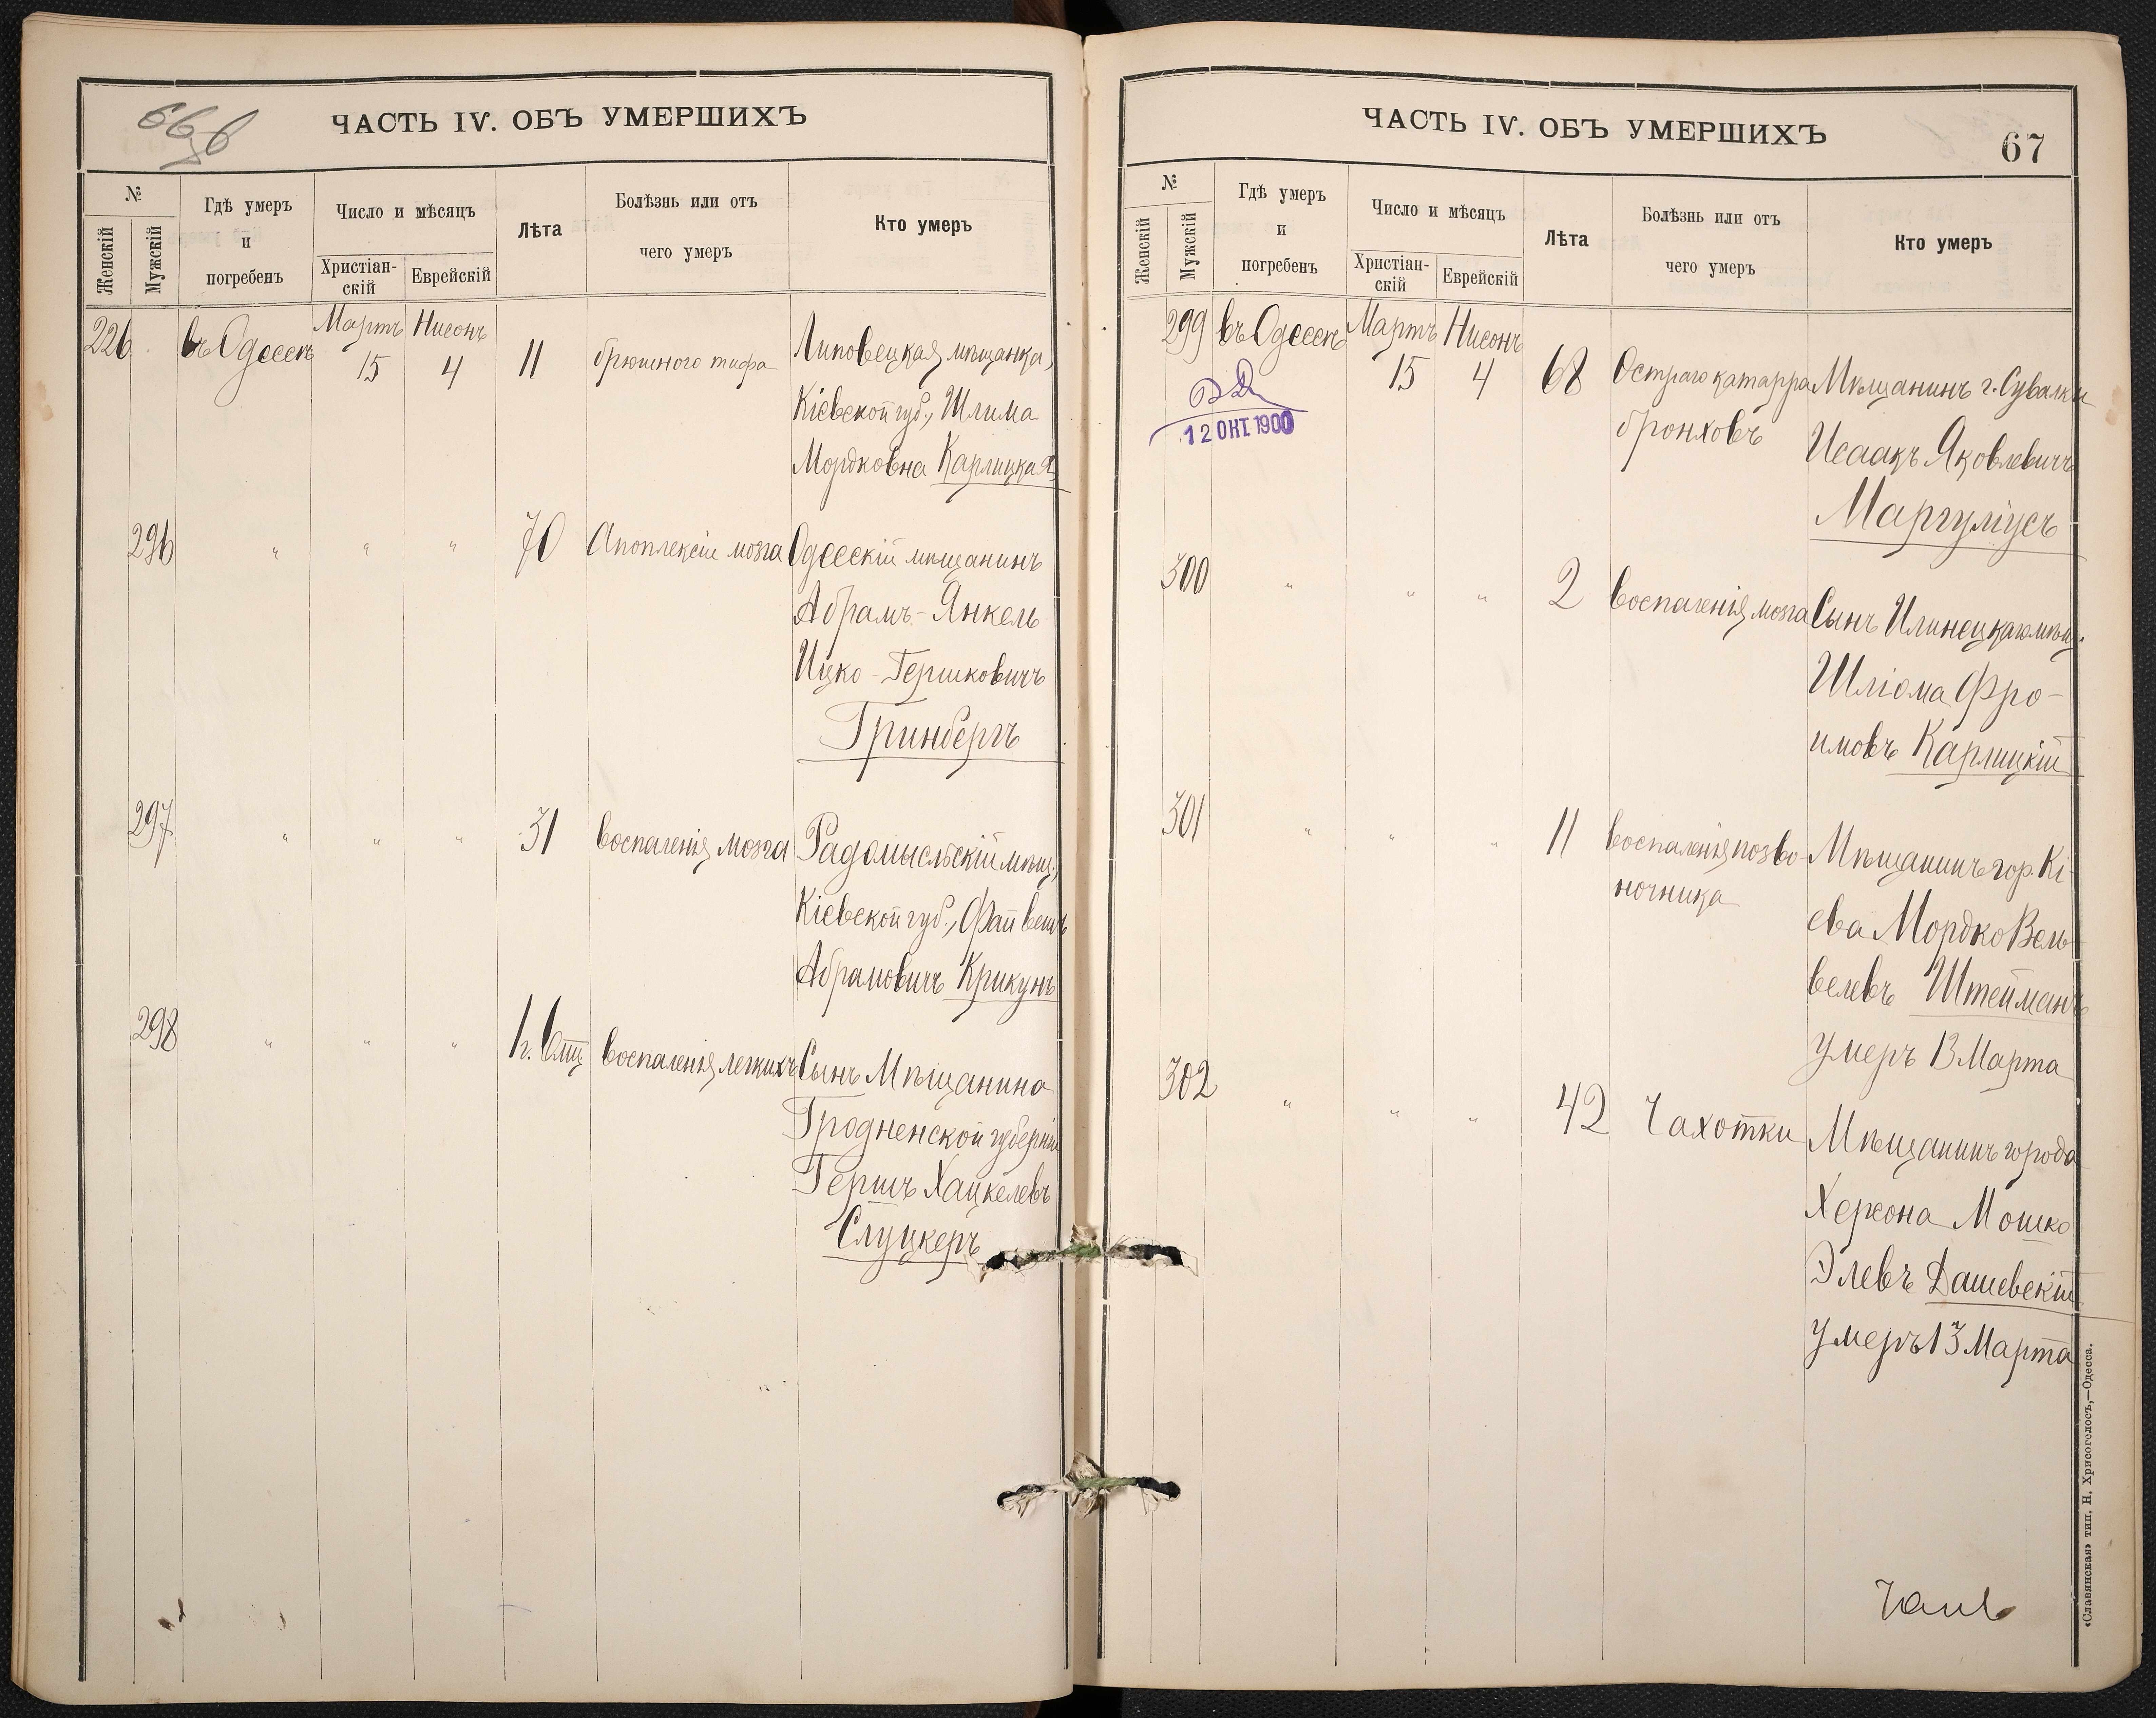 66 об
ЧАСТЬ IV. ОБЪ УМЕРШИХЪ
№
Женскій
Мужскій
Гдѣ умеръ
и
погребенъ
Число и мѣсяцъ
Христіан-
скій
Еврейскій
Лѣта
Болѣзнь или отъ
чего умеръ
Кто умеръ
226 въ Одессѣ Мартъ 15 Нисонъ 4 11 брюшного тифа Липовецкая мѣщанка,
Кіевской губ., Шлима
Мордковна Карлицкая
296 " " " 70 Апоплексіи мозга Одесскій мѣщанинъ
Абрамъ-Янкель
Ицко-Гершковичъ
Гринбергъ
297 " " " 31 воспаленія мозга Радомысльскій мѣщ.,
Кіевской губ., Файвешъ
Абрамовичъ Крикунъ
298 " " " 1 г. воспаленія легкихъ Сынъ Мѣщанина
Гродненской губерніи
Гершъ Хацкелевъ
Слуцкеръ
ЧАСТЬ IV. ОБЪ УМЕРШИХЪ
67
№
Женскій
Мужскій
Гдѣ умеръ
и
погребенъ
Число и мѣсяцъ
Христіан-
скій
Еврейскій
Лѣта
Болѣзнь или отъ
чего умеръ
Кто умеръ
299 въ Одессѣ Мартъ 15 Нисонъ 4 68 Остраго катарра Мѣщанинъ г. Сувалки
бронховъ Исаакъ Яковлевичъ
12 ОКТ. 1900
Маргуліусъ
300 " " " 2 воспаленія мозга Сынъ Илинецкаго мѣщ.
Шліома Фро-
имовъ Карлицкій
301 " " " 11 воспаленія позво- Мѣщанинъ гор. Кі-
ночника ева Мордко Вель-
велевъ Штейманъ
умеръ 13 Марта
302 " " " 42 Чахотки Мѣщанинъ города
Херсона Мошко
Элевъ Дашевскій
умеръ 13 Марта
«Славянская» тип. Н. Хрисогелосъ,—Одесса.